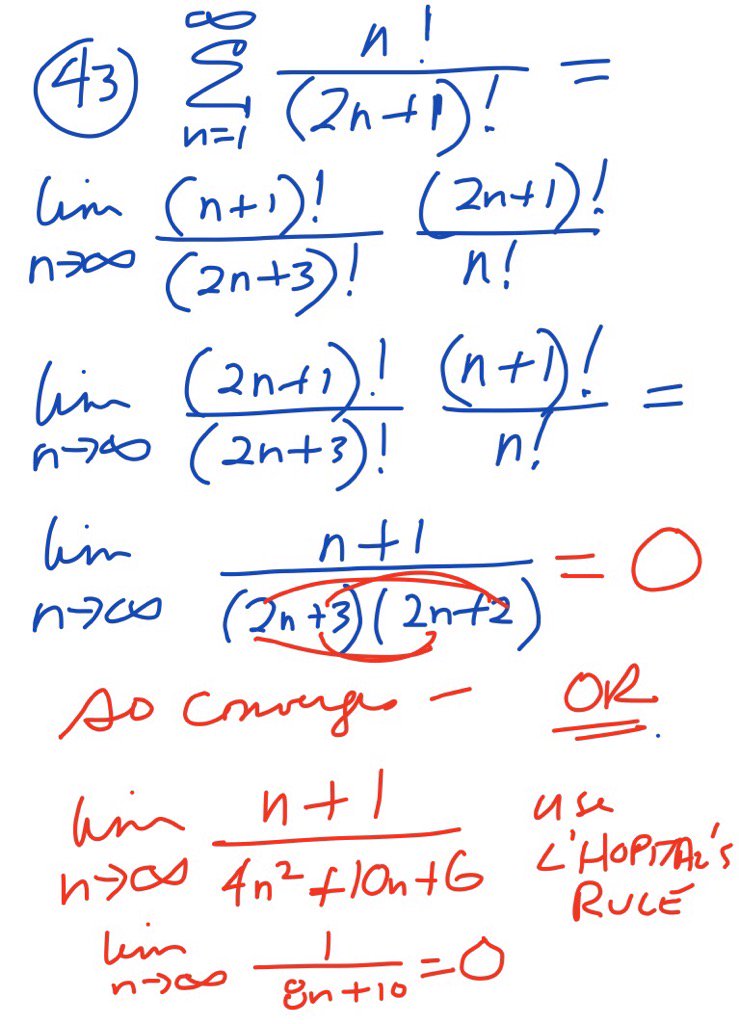 43 ∞∑n=1 n!/(2n+1)! =
lim n→∞ (n+1)!/(2n+3)! (2n+1)!/n!
lim n→∞ (2n+1)!/(2n+3)! (n+1)!/n! =
lim n→∞ n+1/(2n+3)(2n+2) = 0
so converges — OR
lim n→∞ n+1/4n²+10n+6 use L'HOPITAL'S RULE
lim n→∞ 1/8n+10 = 0